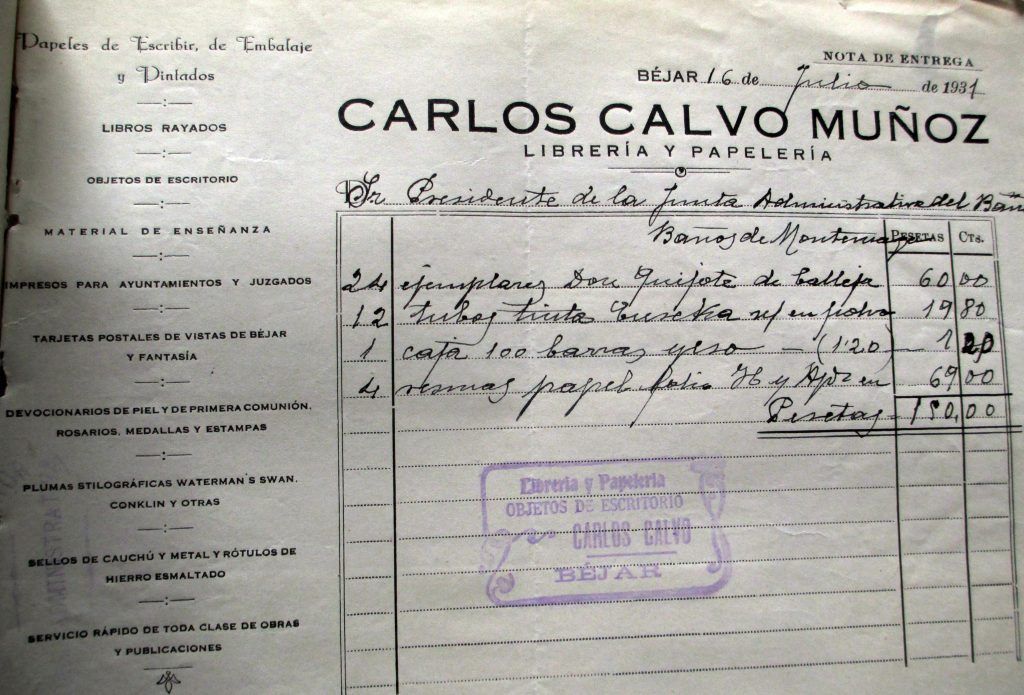 Papeles de Escribir, de Embalaje
y Pintados
LIBROS RAYADOS
OBJETOS DE ESCRITORIO
MATERIAL DE ENSEÑANZA
IMPRESOS PARA AYUNTAMIENTOS Y JUZGADOS
TARJETAS POSTALES DE VISTAS DE BÉJAR
Y FANTASÍA
DEVOCIONARIOS DE PIEL Y DE PRIMERA COMUNIÓN,
ROSARIOS, MEDALLAS Y ESTAMPAS
PLUMAS STILOGRÁFICAS WATERMAN'S SWAN,
CONKLIN Y OTRAS
SELLOS DE CAUCHÚ Y METAL Y RÓTULOS DE
HIERRO ESMALTADO
SERVICIO RÁPIDO DE TODA CLASE DE OBRAS
Y PUBLICACIONES
NOTA DE ENTREGA
BÉJAR 16 de Julio de 1931
CARLOS CALVO MUÑOZ
LIBRERÍA Y PAPELERÍA
Sr. Presidente de la Junta Administrativa del
Baños de Montemayor PESETAS CTS.
24 ejemplares Don Quijote de Calleja 60 00
12 tubos tinta Eureka en 19 80
1 caja 100 barras yeso — (1'20) — 1 20
4 resmas papel folio y en 69 00
Pesetas 150,00
Librería y Papelería
OBJETOS DE ESCRITORIO
CARLOS CALVO
BÉJAR